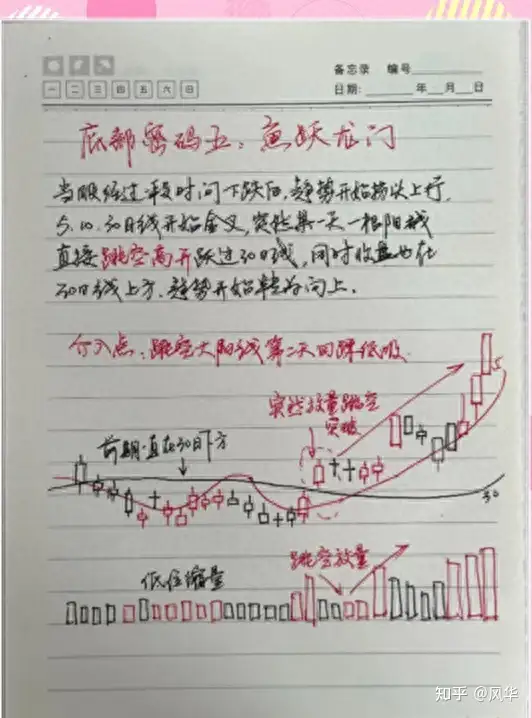 备忘录 编号
一 二 三 四 五 六 日
日期: 年 月 日
底部密码五：鱼跃龙门
当股经过一段时间下跌后，趋势开始拐头上行，
5.10.30日线开始金叉，突然某一天一根阳线
直接跳空高开跃过30日线，同时收盘也在
30日线上方，趋势开始转为向上。
介入点：跳空大阳线第二天回踩低吸
突然放量跳空
突破
前期一直在30日下方
5
30
跳空放量
低位缩量
知乎 @风华